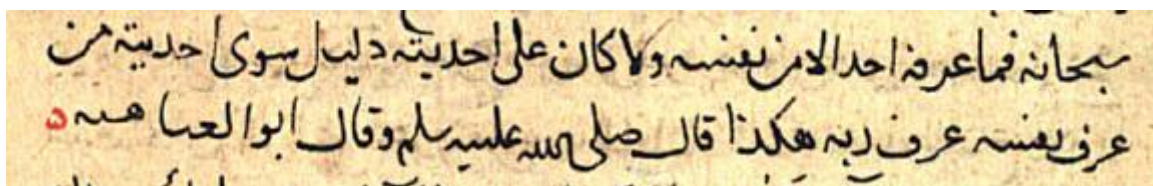 سبحانه فما عرفه احد الا من نفسه ولا كان على احديته دليل سوى احديته من
عرف نفسه عرف ربه هكذا قال صلى الله عليه سلم وقال ابو العتاهيه ه